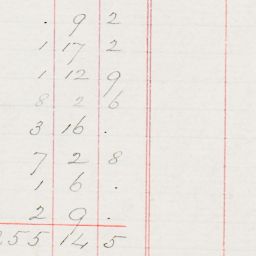 . 9 2
1 17 2
1 12 9
8 2 6
3 16 .
7 2 8
1 6 .
2 9 .
255 14 5